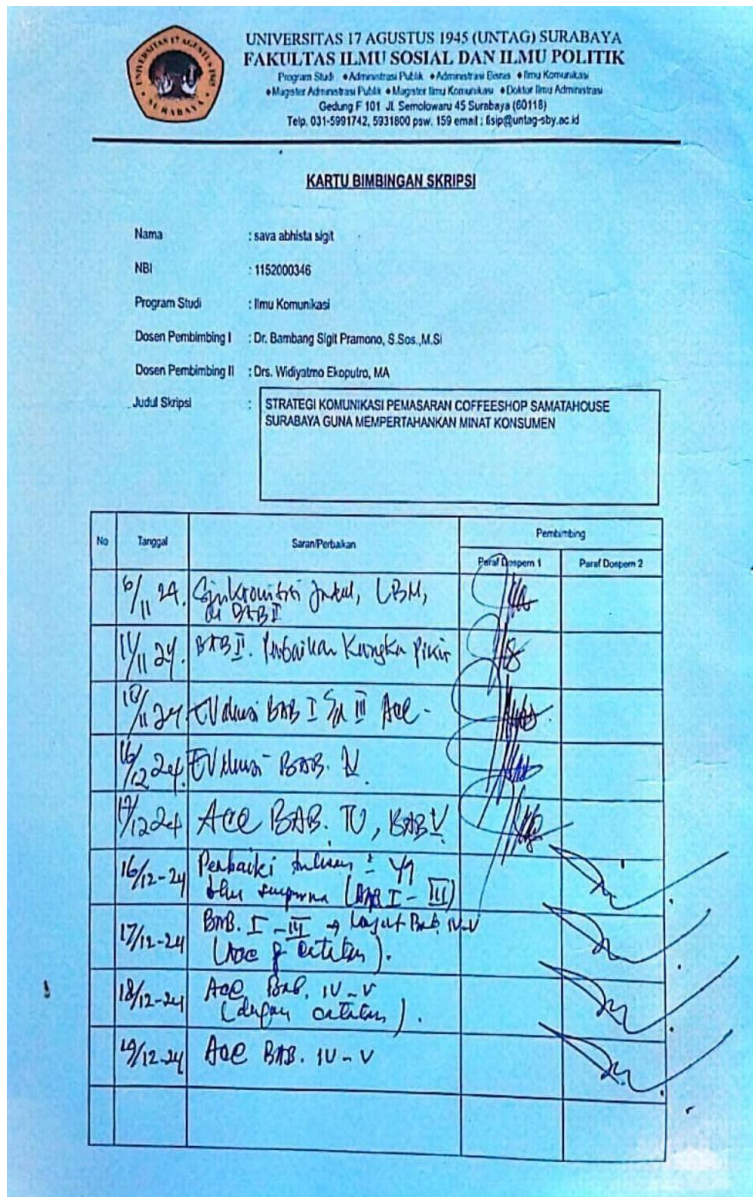 UNIVERSITAS 17 AGUSTUS 1945 (UNTAG) SURABAYA
FAKULTAS ILMU SOSIAL DAN ILMU POLITIK
Program Studi ♦Administrasi Publik ♦Administrasi Bisnis ♦Ilmu Komunikasi
♦Magister Administrasi Publik ♦Magister Ilmu Komunikasi ♦Doktor Ilmu Administrasi
Gedung F 101 Jl. Semolowaru 45 Surabaya (60118)
Telp. 031-5991742, 5931800 psw. 159 email : fisip@untag-sby.ac.id
KARTU BIMBINGAN SKRIPSI
Nama : sava abhista sigit
NBI : 1152000346
Program Studi : Ilmu Komunikasi
Dosen Pembimbing I : Dr. Bambang Sigit Pramono, S.Sos.,M.Si
Dosen Pembimbing II : Drs. Widiyatmo Ekoputro, MA
Judul Skripsi : STRATEGI KOMUNIKASI PEMASARAN COFFEESHOP SAMATAHOUSE
SURABAYA GUNA MEMPERTAHANKAN MINAT KONSUMEN
No Tanggal Saran/Perbaikan Pembimbing
Paraf Dospem 1 Paraf Dospem 2
6/11 24. LBM,
BAB I
11/11 24. BAB II. Perbaikan Kerangka Pikir
/11 24. BAB I III Acc -
/12 24. BAB. IV
/12 24 Acc BAB. IV, BAB V
16/12-24 Perbaiki tulisan yg
(BAB I - III)
17/12-24 BAB. I - III → Lanjut Bab. IV-V
(Acc catatan).
18/12-24 Acc Bab. IV-V
(dengan catatan).
19/12-24 Acc BAB. IV-V